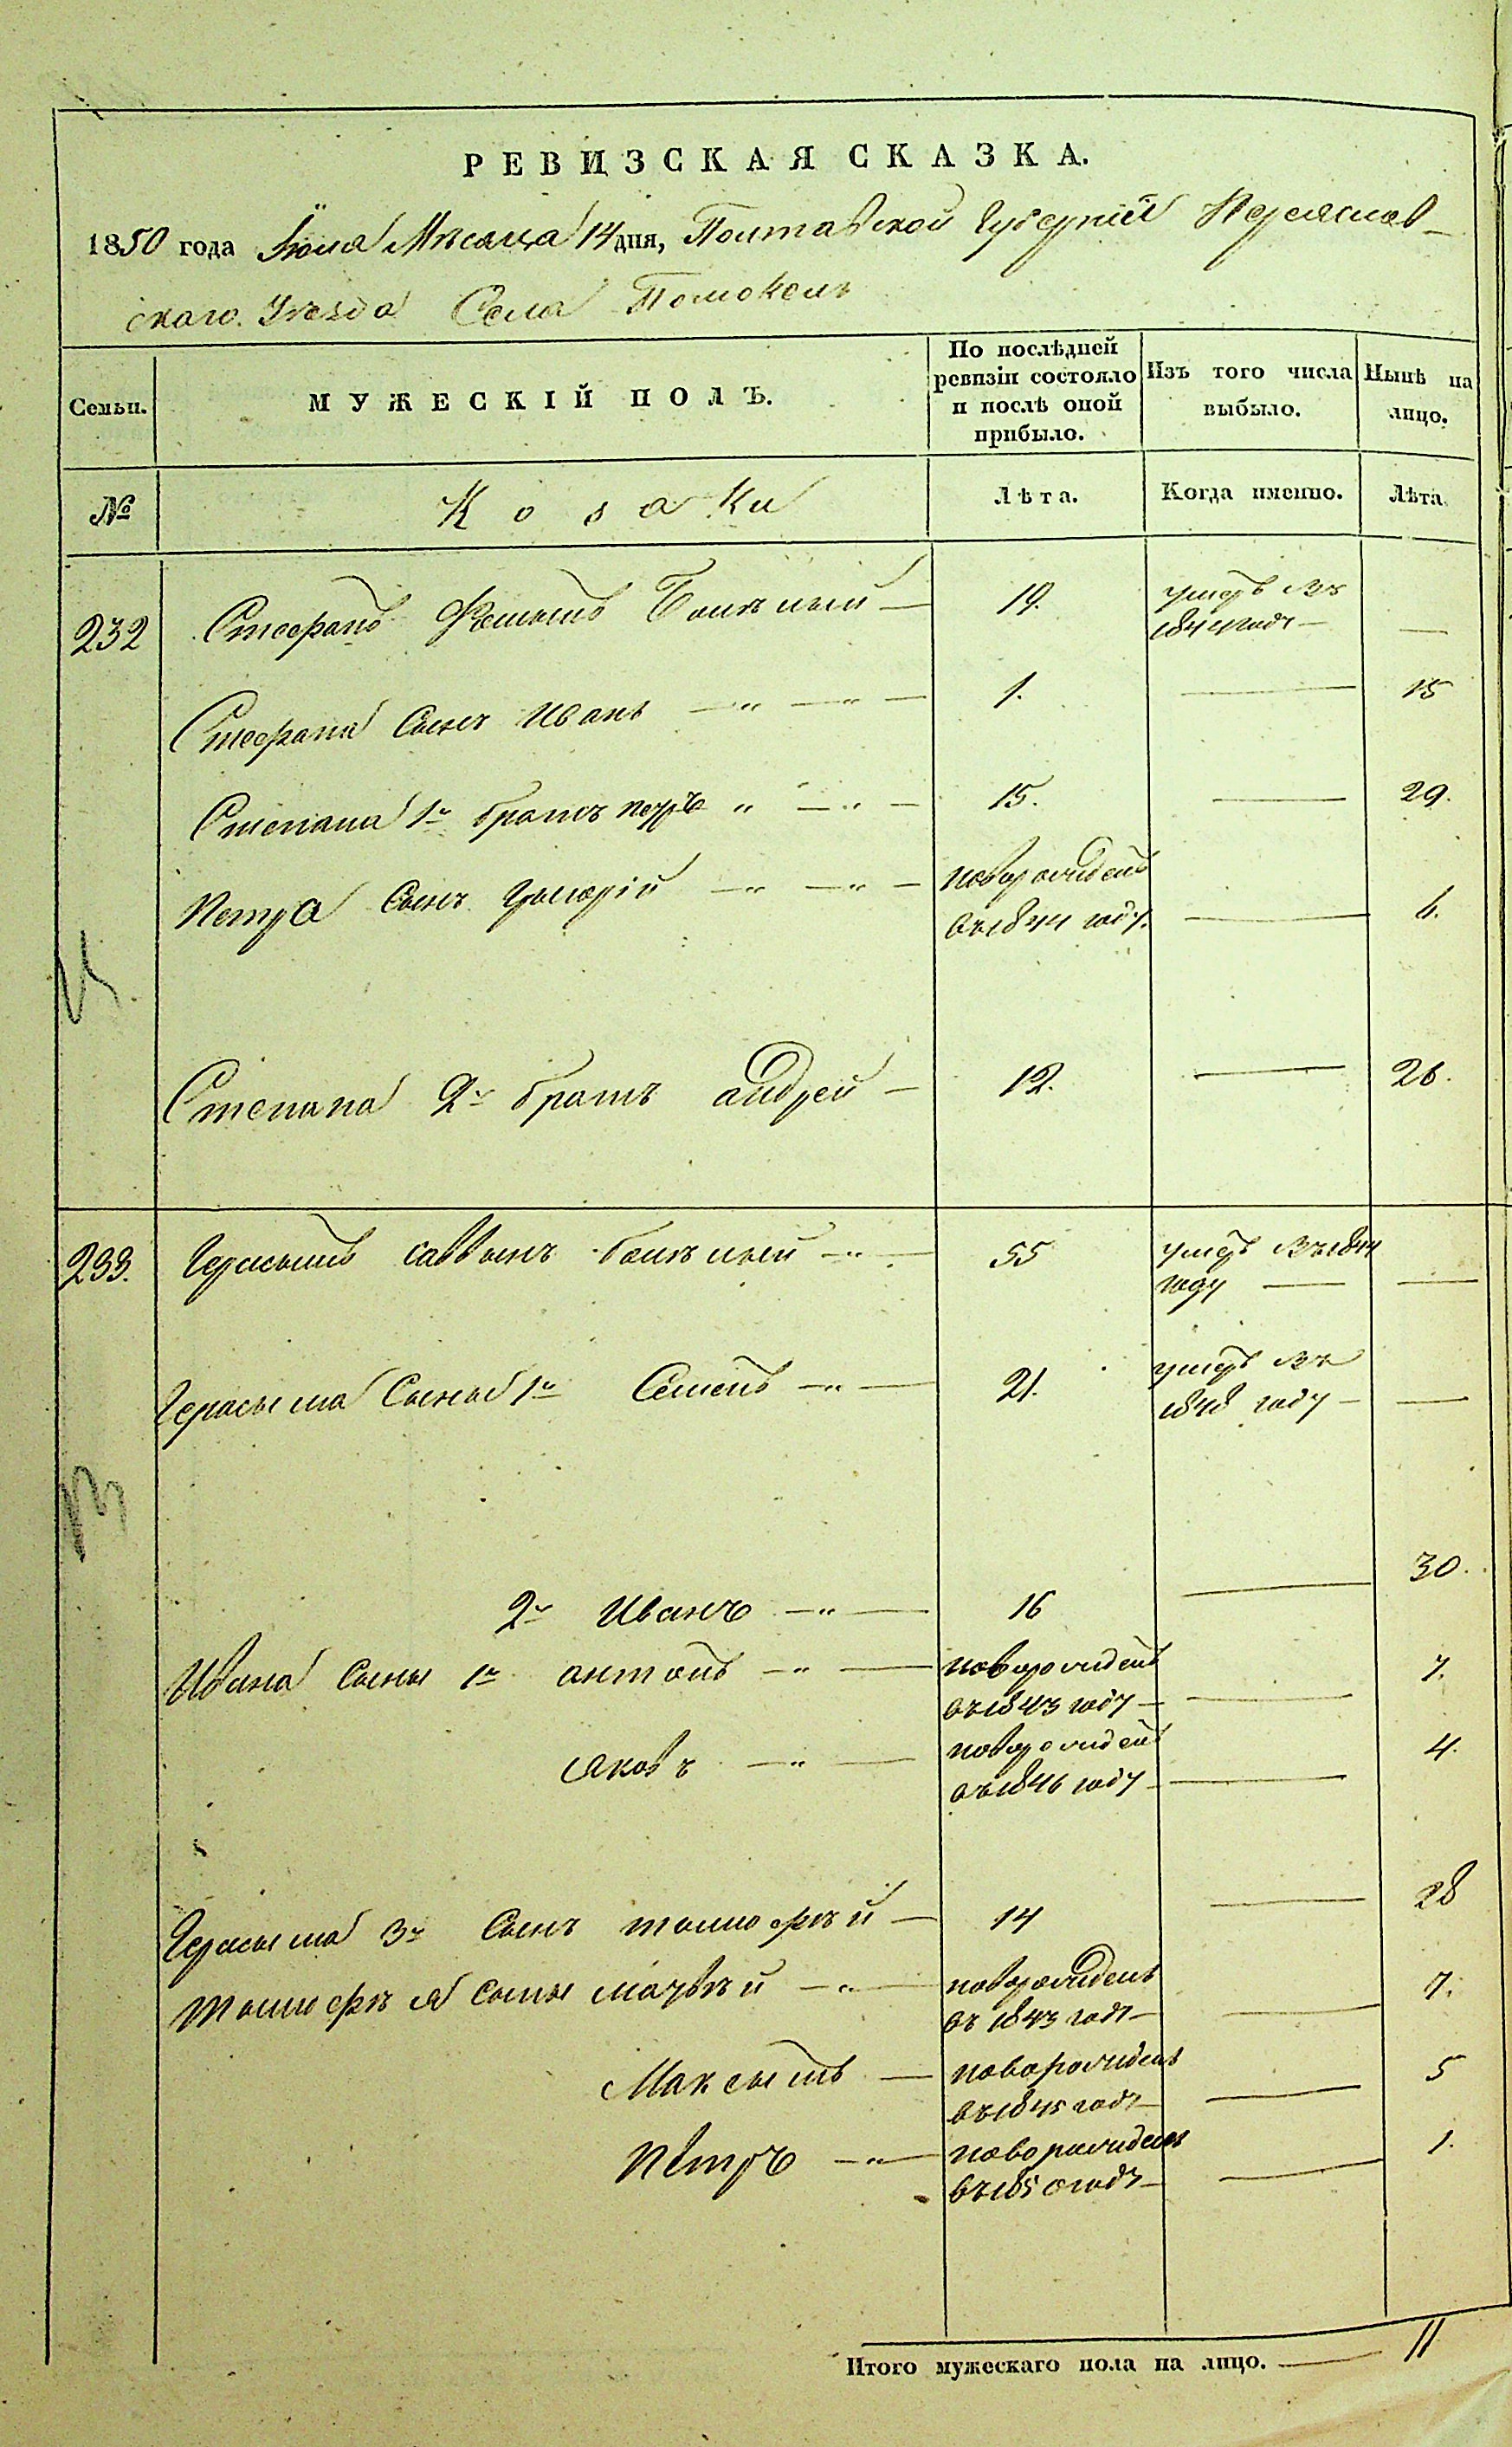 РЕВИЗСКАЯ СКАЗКА.
1850 года Июля Мѣсяца 14 дня, Полтавской Губерніи Переяслав-
скаго Уѣзда Села Помоклъ
Семьи. МУЖЕСКІЙ ПОЛЪ. По послѣдней ревизіи состояло и послѣ оной прибыло. Изъ того числа выбыло. Нынѣ на лицо.
№ Козаки Лѣта. Когда именно. Лѣта.
232 Стефанъ 19. умеръ въ
1844 году —
Стефана Сынъ Иванъ 1. — 15
Степана 1й братъ петръ 15. — 29.
Петра Сынъ Григорій новорожденъ
въ 1844 году. — 6.
Степана 2й братъ андрей 12. — 26.
233. Герасымъ саввынъ 55 умеръ въ 1844
году —
Герасыма Сыны 1й Семенъ 21. умеръ въ
1848 году —
2й Иванъ 16 — 30.
Ивана Сыны 1й антонъ новорожденъ
въ 1843 году — 7.
яковъ новорожденъ
въ 1846 году — 4.
Герасыма 3й Сынъ тымофѣй 14 — 28
тымофѣя Сыны матвѣй новорожденъ
въ 1843 году — 7.
Максымъ новорожденъ
въ 1845 году — 5
Петръ новорожденъ
въ 1850 году — 1.
Итого мужескаго пола на лицо. — 11